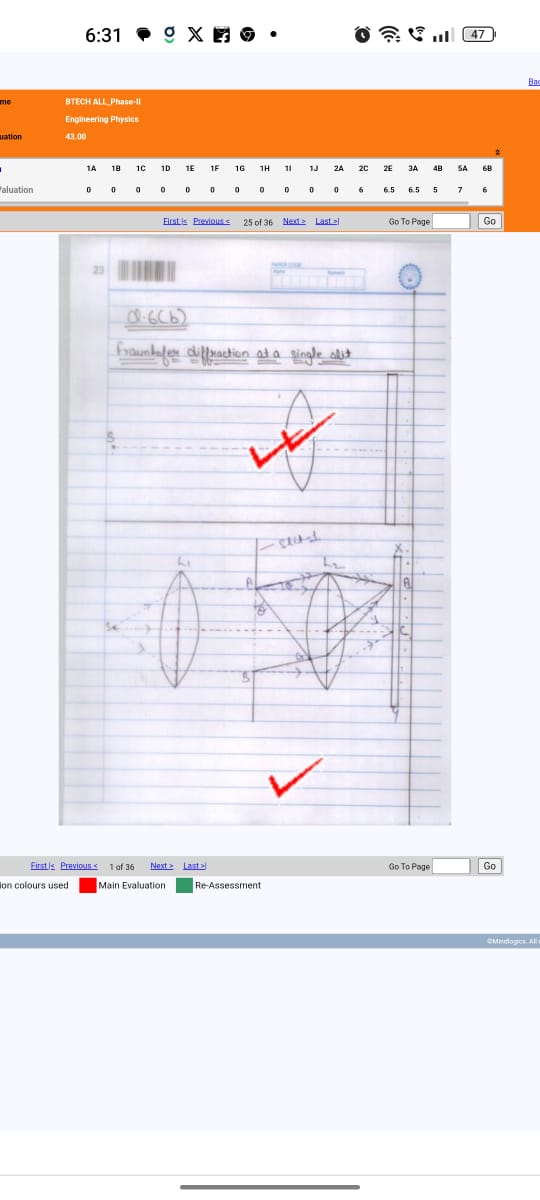 6:31
47
Bac
me BTECH ALL_Phase-II
Engineering Physics
uation 43.00
1A 1B 1C 1D 1E 1F 1G 1H 1I 1J 2A 2C 2E 3A 4B 5A 6B
Valuation 0 0 0 0 0 0 0 0 0 0 0 6 6.5 6.5 5 7 6
First |< Previous < 25 of 36 Next > Last >| Go To Page Go
23
PAPER CODE
Q.6(b)
Fraunhofer diffraction at a single slit
S
slit
L1 L2 X
A θ P
θ
S C
y
B
Y
First |< Previous < 1 of 36 Next > Last >| Go To Page Go
ion colours used Main Evaluation Re-Assessment
©Mindlogicx. All